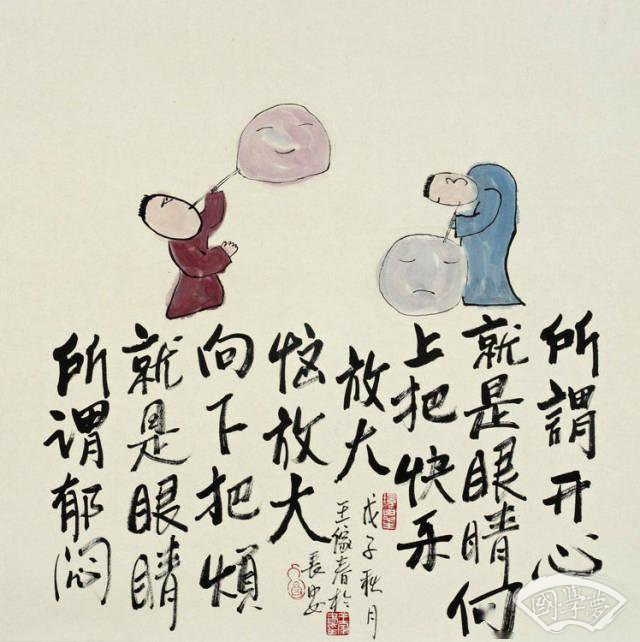 所謂开心
就是眼睛向
上把快乐
放大
所谓郁闷
就是眼睛
向下把煩
恼放大
戊子秋月
王傢春於
長安
國學夢